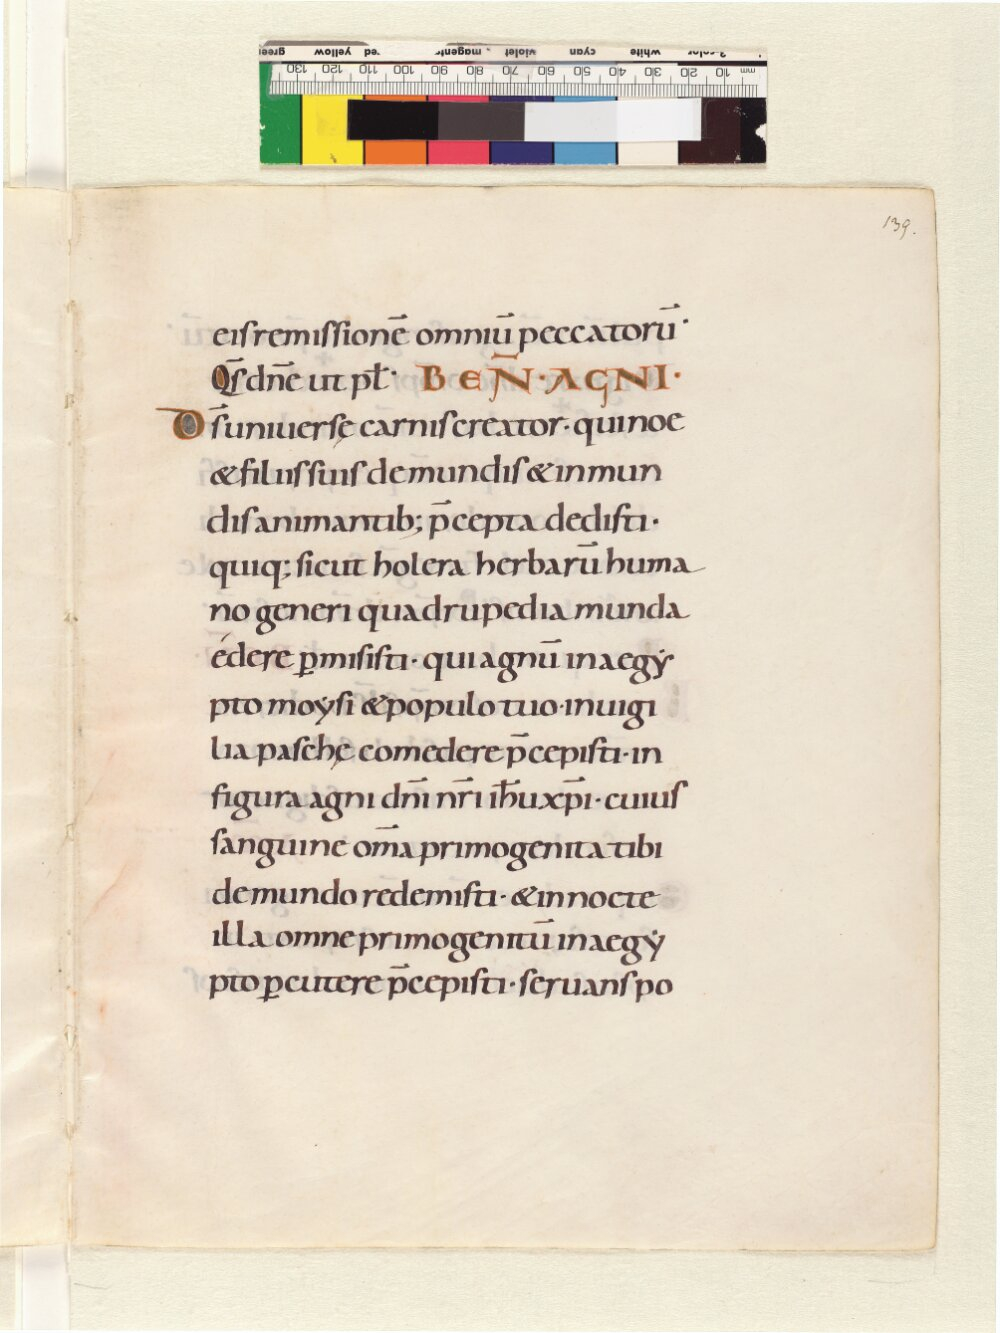 139.
eis remissionē omniū peccatorū·
Qs̄ dn̄e ut pł· BEN̄· AGNI·
Ds̄ uniuersę carnis creator· qui noe
& filiis suis de mundis & inmun
dis animantib; p̄cepta dedisti·
quiq; sicut holera herbarū huma
no generi quadrupedia munda
édere ꝑmisisti· qui agnū in aegẏ
pto moẏsi & populo tuo· in uigi
lia paschę comedere p̄cepisti· in
figura agni dn̄i nr̄i ih̄u xp̄i· cuius
sanguine om̄a primogenita tibi
de mundo redemisti· & in nocte
illa omne primogenitū in aegẏ
pto ꝑcutere p̄cepisti· seruans po
mm 10 20 30 40 50 60 70 80 90 100 110 120 130
white cyan violet magenta red yellow green